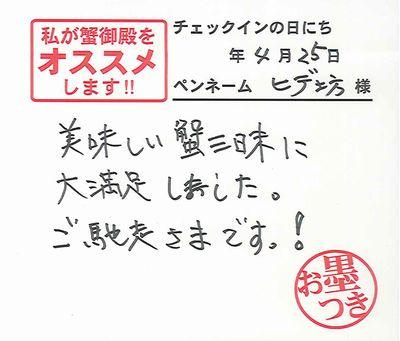 私が蟹御殿を
オススメ
します!!
チェックインの日にち
年4月25日
ペンネーム ヒデ坊 様
美味しい蟹三昧に
大満足しました。
ご馳走さまです。!
お墨つき